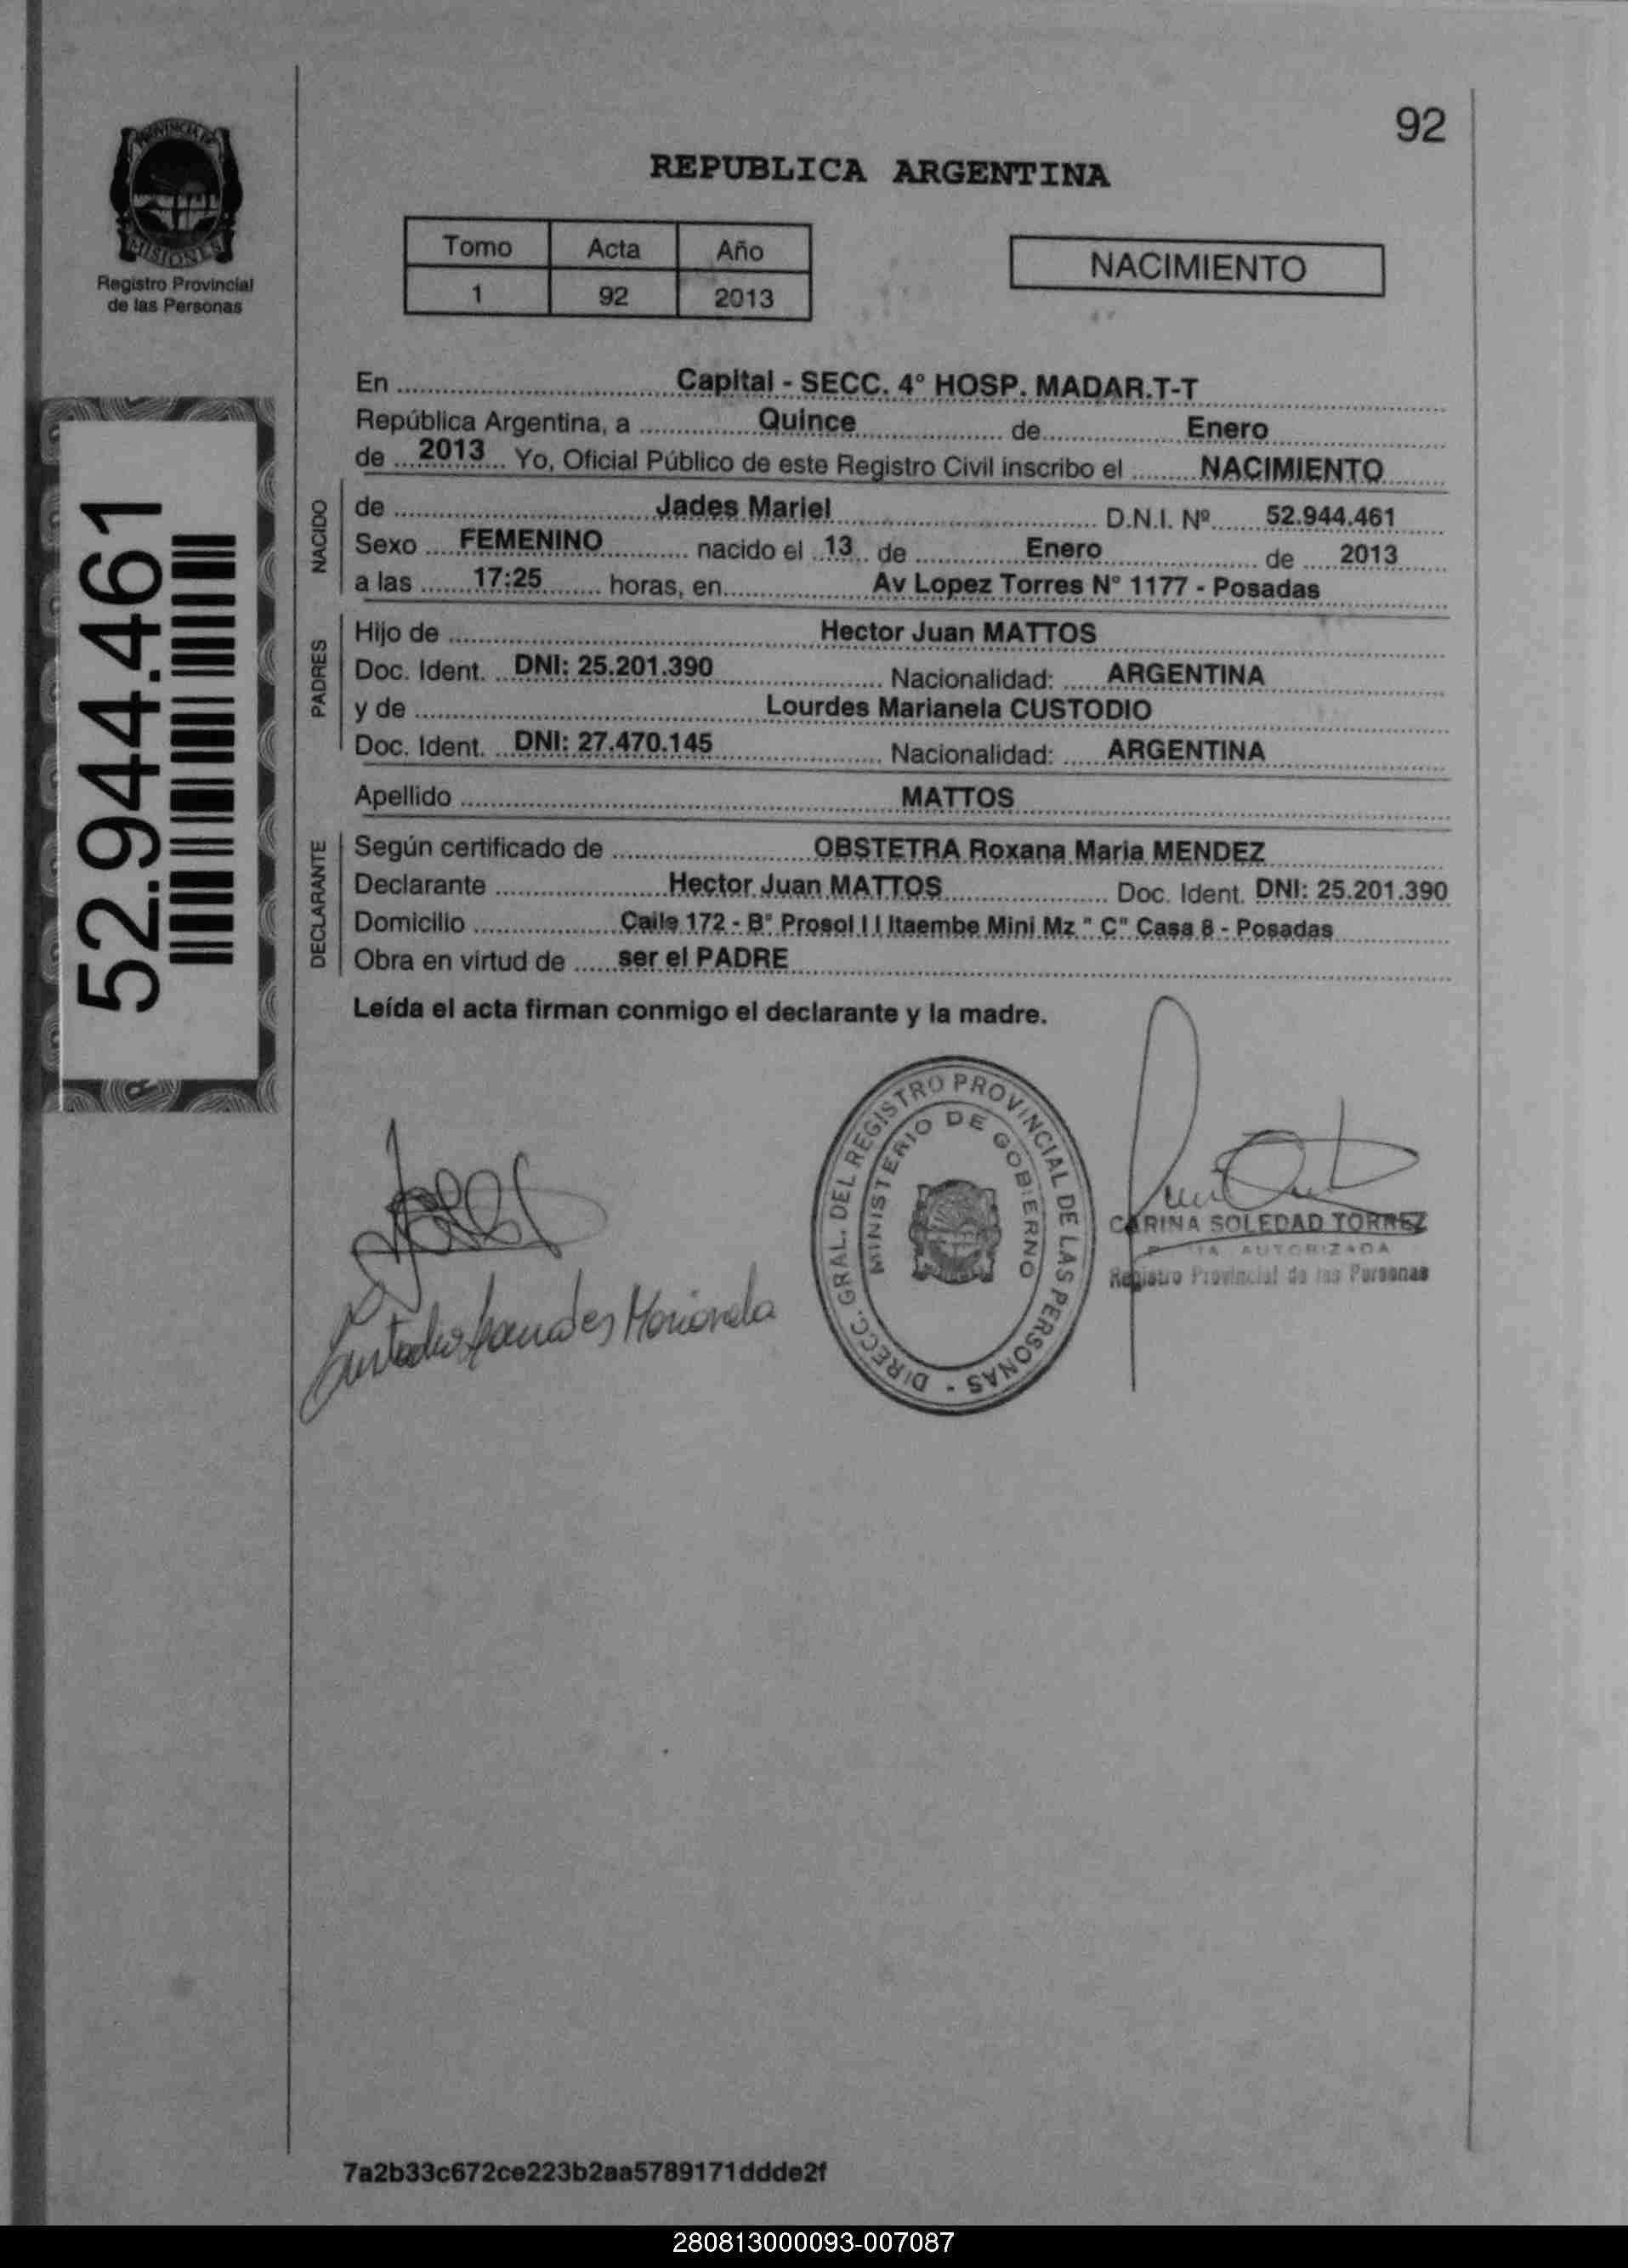 92
PROVINCIA DE
MISIONES
Registro Provincial
de las Personas
REPUBLICA ARGENTINA
Tomo Acta Año
1 92 2013
NACIMIENTO
52.944.461
En Capital - SECC. 4° HOSP. MADAR.T-T
República Argentina, a Quince de Enero
de 2013 Yo, Oficial Público de este Registro Civil inscribo el NACIMIENTO
NACIDO
de Jades Mariel D.N.I. Nº 52.944.461
Sexo FEMENINO nacido el 13 de Enero de 2013
a las 17:25 horas, en Av Lopez Torres N° 1177 - Posadas
PADRES
Hijo de Hector Juan MATTOS
Doc. Ident. DNI: 25.201.390 Nacionalidad: ARGENTINA
y de Lourdes Marianela CUSTODIO
Doc. Ident. DNI: 27.470.145 Nacionalidad: ARGENTINA
Apellido MATTOS
DECLARANTE
Según certificado de OBSTETRA Roxana Maria MENDEZ
Declarante Hector Juan MATTOS Doc. Ident. DNI: 25.201.390
Domicilio Calle 172 - B° Prosol I I Itaembe Mini Mz " C" Casa 8 - Posadas
Obra en virtud de ser el PADRE
Leída el acta firman conmigo el declarante y la madre.
DIRECC. GRAL. DEL REGISTRO PROVINCIAL DE LAS PERSONAS -
MINISTERIO DE GOBIERNO
CARINA SOLEDAD TORREZ
AUTORIZADA
Registro Provincial de las Personas
7a2b33c672ce223b2aa5789171ddde2f
280813000093-007087